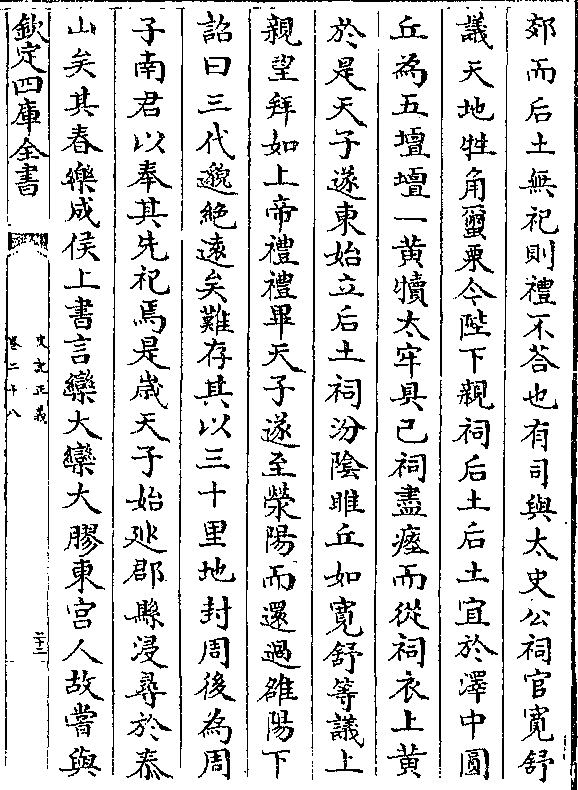 郊而后土無祀則禮不荅也有司與太史公祠官寛舒
議天地牲角蠒栗今陛下親祠后土后土宜於澤中圓
丘為五壇壇一黄犢太牢具已祠盡瘞而從祠衣上黄
於是天子遂東始立后土祠汾陰脽丘如寛舒等議上
親望拜如上帝禮禮畢天子遂至滎陽而還過雒陽下
詔曰三代邈絶逺矣難存其以三十里地封周後為周
子南君以奉其先祀焉是歳天子始廵郡縣浸尋於泰
山矣其春樂成侯上書言欒大欒大膠東宫人故嘗與
欽定四庫全書
史記正義
卷二十八